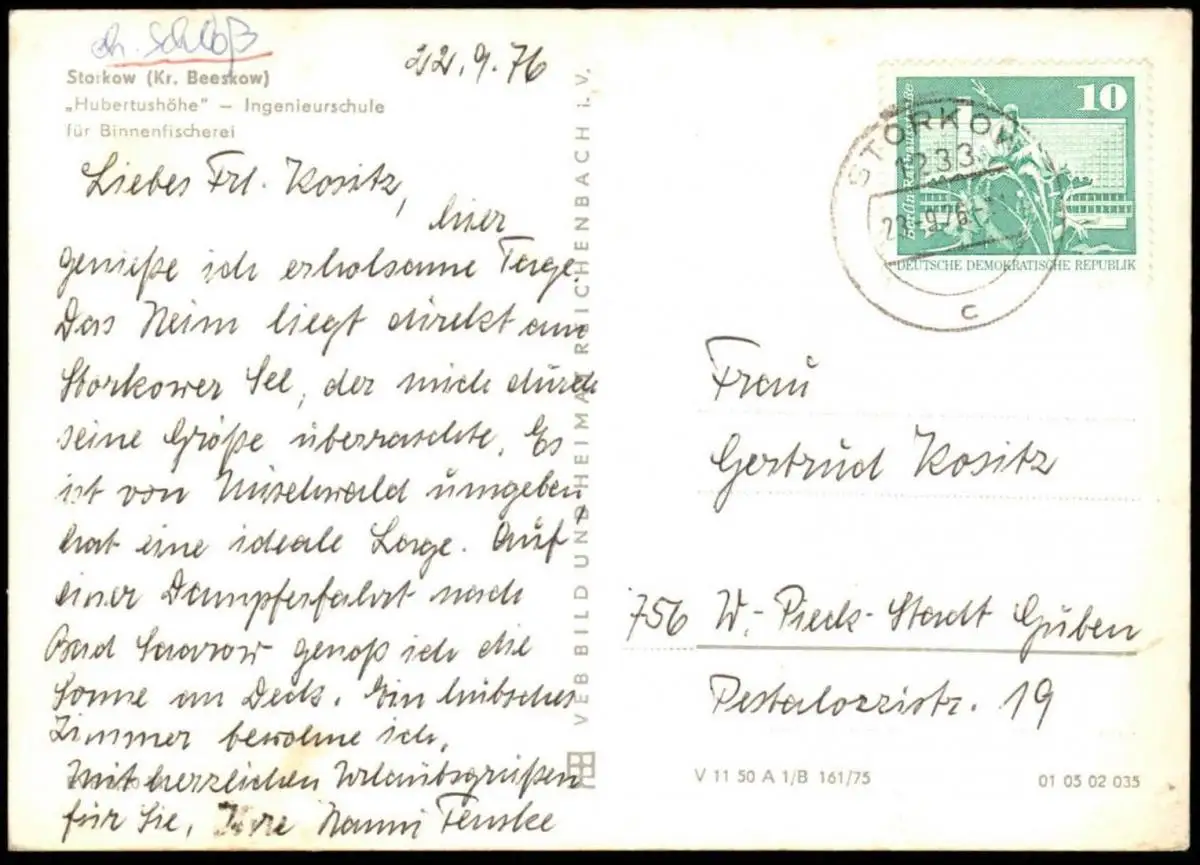 Schloß
22.9.76
Storkow (Kr. Beeskow)
„Hubertushöhe" – Ingenieurschule
für Binnenfischerei
Liebes Frl. Kositz,
hier
genieße ich erholsame Tage.
Das Heim liegt direkt am
Storkower See, der mich durch
seine Größe überraschte. Es
ist von Mischwald umgeben,
hat eine ideale Lage. Auf
einer Dampferfahrt nach
Bad Saarow genoß ich die
Sonne an Deck. Ein hübsches
Zimmer bewohne ich.
Mit herzlichen Urlaubsgrüßen
für Sie, Ihre Nanni Fenske
VEB BILD UND HEIMAT REICHENBACH i. V.
10
Berlin, Rathausstraße
DEUTSCHE DEMOKRATISCHE REPUBLIK
STORKOW
1233
23.-9.76
c
Frau
Gertrud Kositz
756 W.-Pieck-Stadt Guben
Pestalozzistr. 19
V 11 50 A 1/B 161/75
01 05 02 035